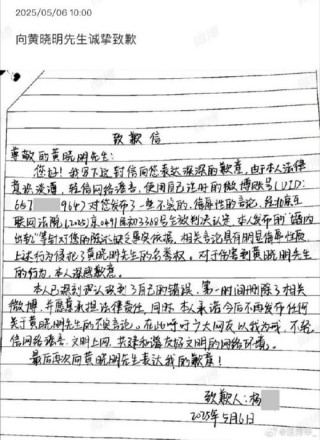 2025/05/06 10:00
向黄晓明先生诚挚致歉
致歉信
尊敬的黄晓明先生:
您好!我写下这封信向您表达深深的歉意,由于本人法律
意识淡薄,轻信网络谣言,使用自己注册的微博账号(UID:
667 9647)对您发布了一些不实的、侮辱性的言论,经北京互
联网法院(2025)京0491民初3368号生效判决认定,本人发布的"婚内
出轨"等针对您的陈述缺乏事实依据,相关言论具有明显侮辱性质
上述行为侵犯了黄晓明先生的名誉权。对于伤害到黄晓明先生
的行为,本人深感歉意。
本人已深刻认识到了自己的错误,第一时间删除了相关
微博,并愿意承担法律责任,同时,本人承诺今后不再发布任何
关于黄晓明先生的不实言论。在此呼吁广大网友以我为戒,不轻
信网络谣言,文明上网,共建和谐友好文明的网络环境。
最后再次向黄晓明先生表达我的歉意!
致歉人:杨
2025年5月6日